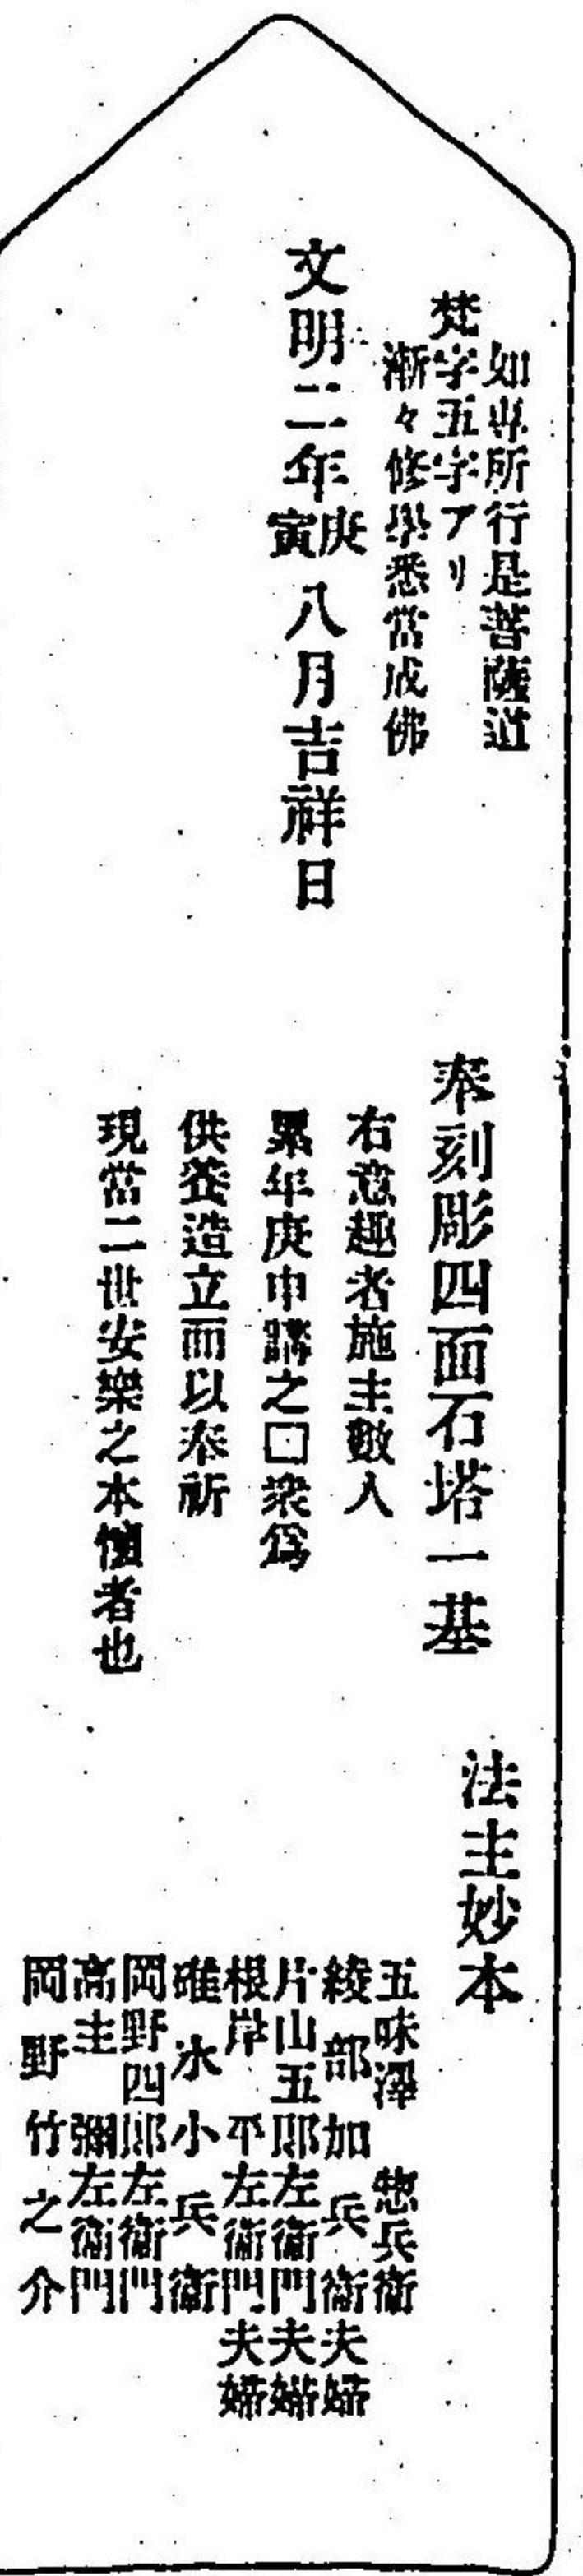 如専所行是菩薩道
梵字五字アリ
漸々修學悉當成佛
文明二年庚寅八月吉祥日
奉刻彫四面石塔一基
右意趣者施主數人
累年庚申講之□衆爲
供養造立而以奉祈
現當二世安樂之本懷者也
法主妙本
五味澤 惣兵衞
綾部加兵衞夫婦
片山五郎左衞門夫婦
根岸 平左衞門夫婦
碓氷小兵衞
岡野四郎左衞門
高主 彌左衞門
岡野竹之介